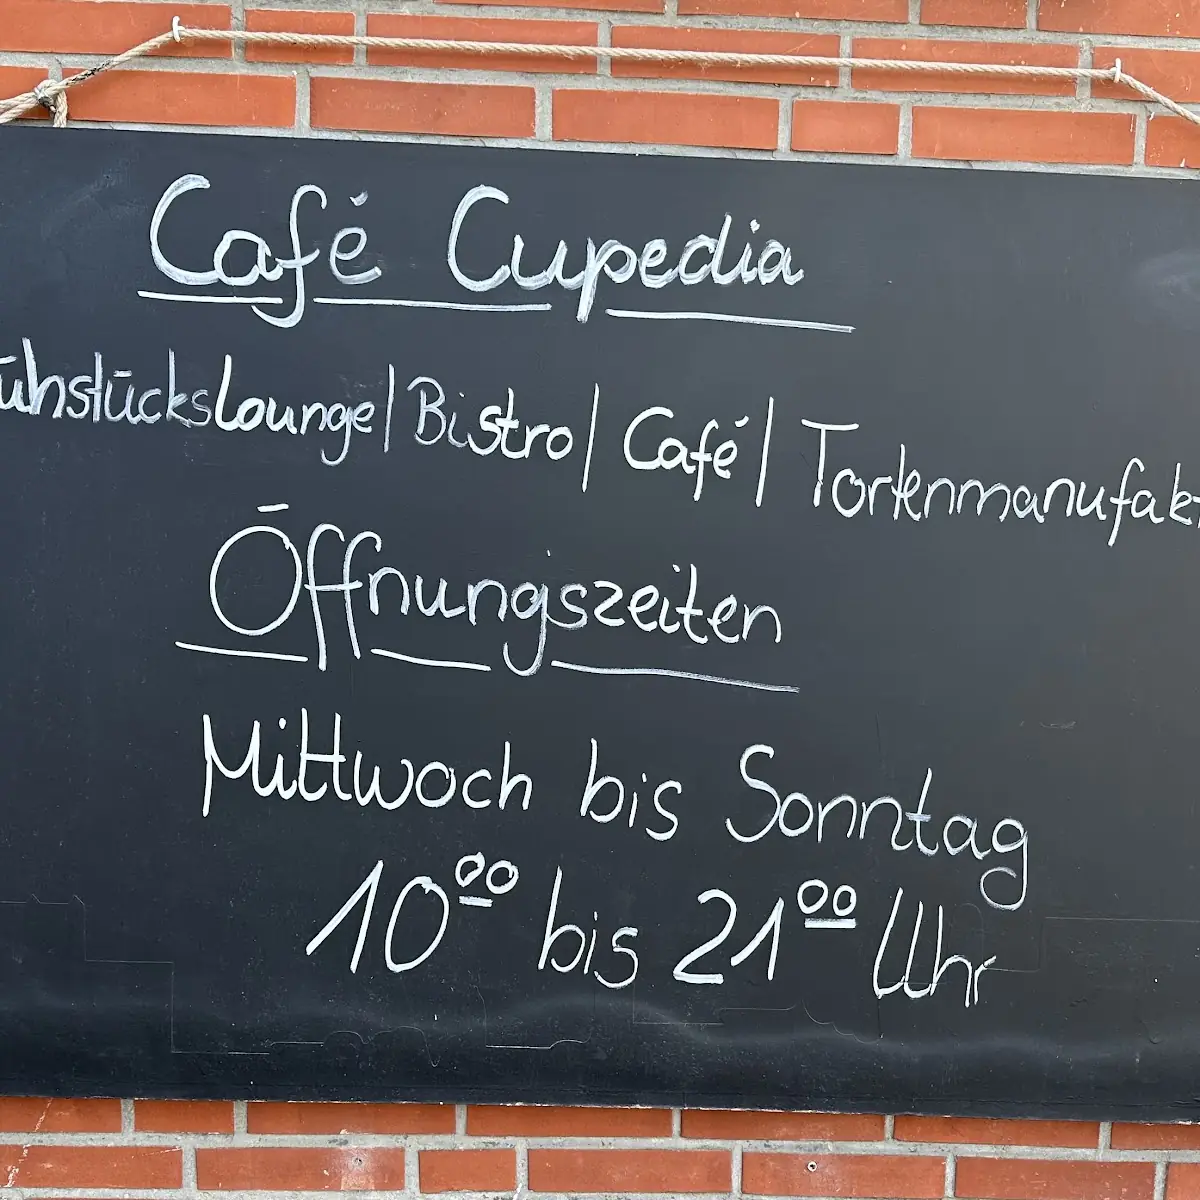 Café Cupedia
ühstückslounge | Bistro | Café | Tortenmanufakt
Öffnungszeiten
Mittwoch bis Sonntag
10⁰⁰ bis 21⁰⁰ Uhr